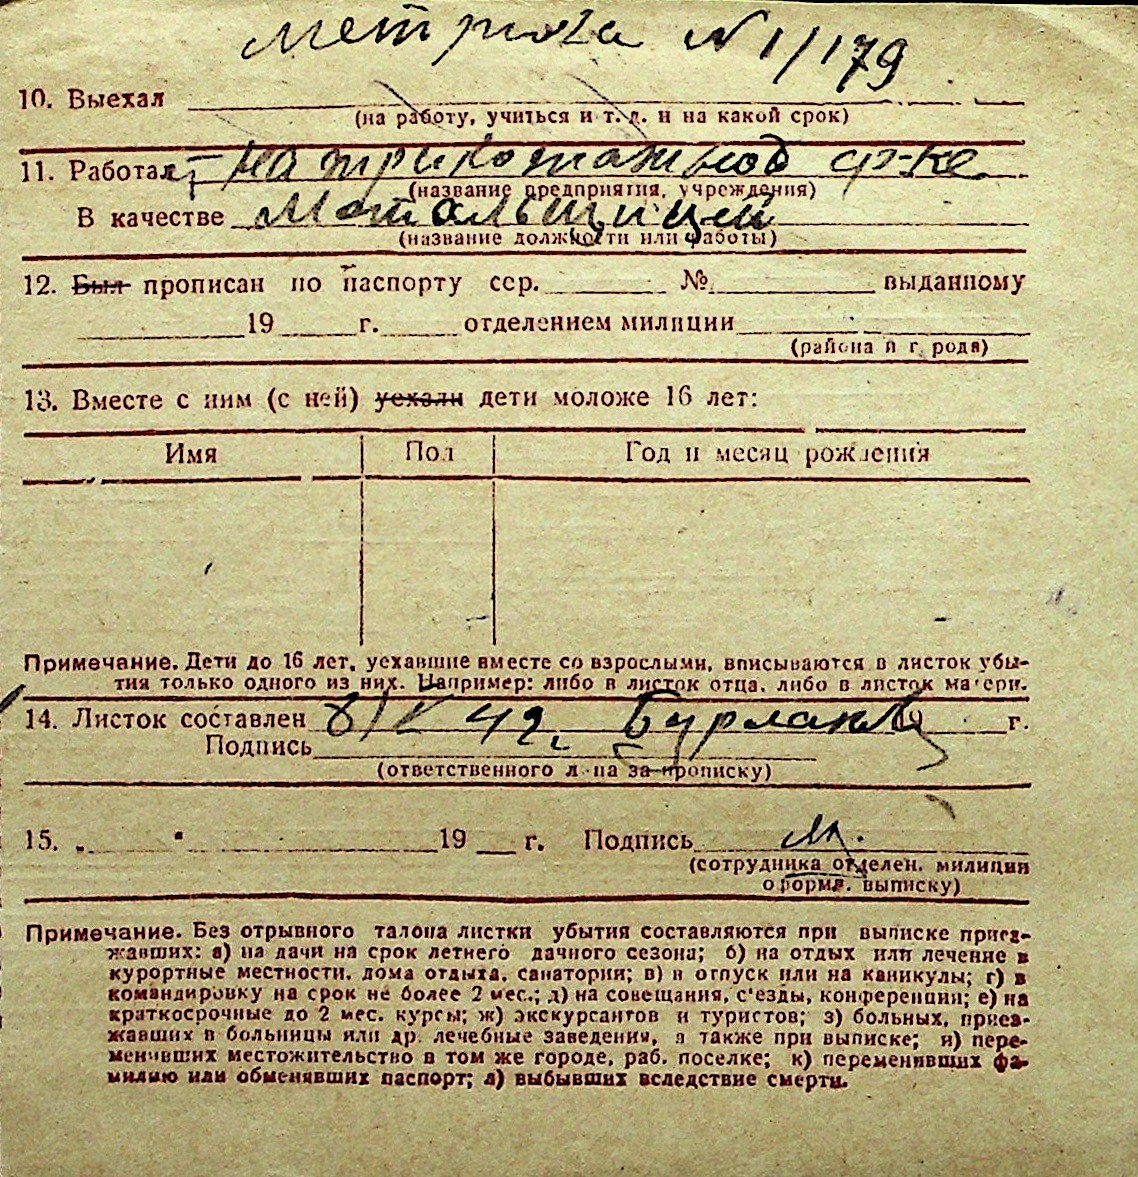 Метрика N 1/179
10. Выехал
(на работу, учиться и т. д. и на какой срок)
11. Работал на трикотажной ф-ке
(название предприятия, учреждения)
В качестве Мотальщицей
(название должности или работы)
12. Был прописан по паспорту сер. № выданному
19 г. отделением милиции
(района и города)
13. Вместе с ним (с ней) уехали дети моложе 16 лет:
Имя Пол Год и месяц рождения
Примечание. Дети до 16 лет, уехавшие вместе со взрослыми, вписываются в листок убы-
тия только одного из них. Например: либо в листок отца, либо в листок матери.
14. Листок составлен 8/V 42 Бурлаков г.
Подпись
(ответственного лица за прописку)
15. 19 г. Подпись
(сотрудника отделен. милиции
оформл. выписку)
Примечание. Без отрывного талона листки убытия составляются при выписке приез-
жавших: а) на дачи на срок летнего дачного сезона; б) на отдых или лечение в
курортные местности, дома отдыха, санатории; в) в отпуск или на каникулы; г) в
командировку на срок не более 2 мес.; д) на совещания, с'езды, конференции; е) на
краткосрочные до 2 мес. курсы; ж) экскурсантов и туристов; з) больных, приез-
жавших в больницы или др. лечебные заведения, а также при выписке; и) пере-
менивших местожительство в том же городе, раб. поселке; к) переменивших фа-
милию или обменявших паспорт; л) выбывших вследствие смерти.